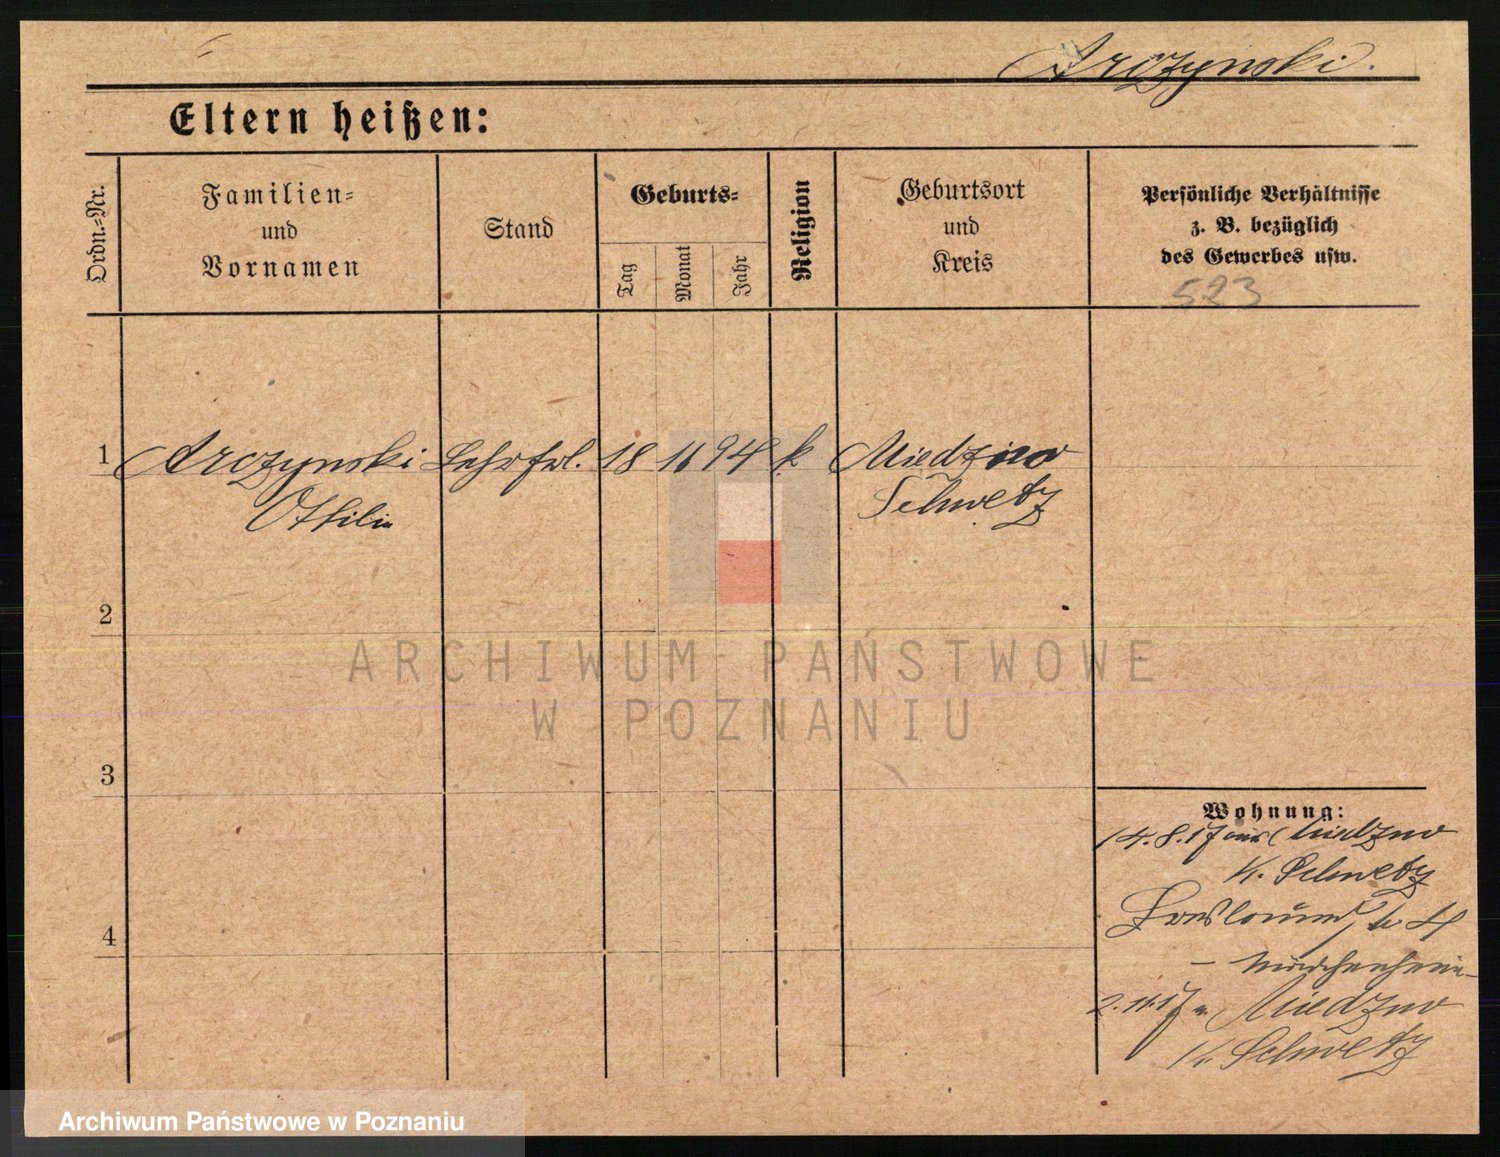 Arczynski.
Eltern heißen:
Ordn.-Nr.
Familien-
und
Vornamen
Stand
Geburts-
Tag
Monat
Jahr
Religion
Geburtsort
und
Kreis
Persönliche Verhältnisse
z. B. bezüglich
des Gewerbes usw.
523
1
Arczynski Lehrfrl. 18 11 94 k Miedzno
Othilie Schwetz
2
ARCHIWUM PAŃSTWOWE
W POZNANIU
3
Wohnung:
14.8.17 aus Miedzno
K. Schwetz
4
2.11.17 n. Miedzno
Kr. Schwetz
Archiwum Państwowe w Poznaniu